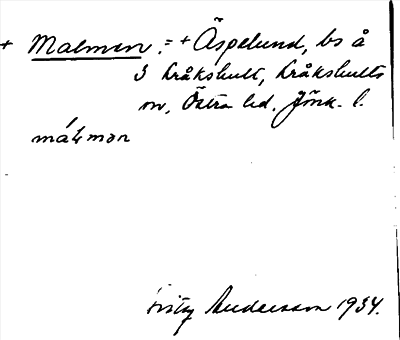 + Malmen. = + Äspelund, bs å
3 Kråkshult, Kråkshults
sn, Östra hd. Jönk. l.
málmən
Fritz Andersson 1934.